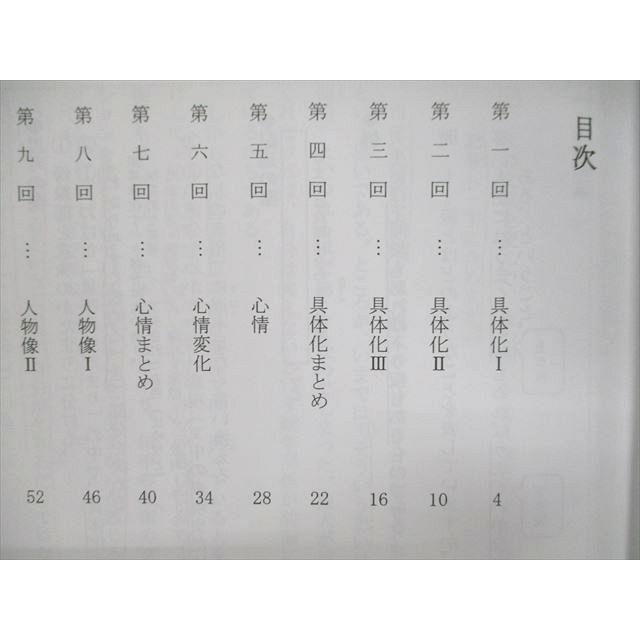 目次
第一回 … 具体化Ⅰ 4
第二回 … 具体化Ⅱ 10
第三回 … 具体化Ⅲ 16
第四回 … 具体化まとめ 22
第五回 … 心情 28
第六回 … 心情変化 34
第七回 … 心情まとめ 40
第八回 … 人物像Ⅰ 46
第九回 … 人物像Ⅱ 52